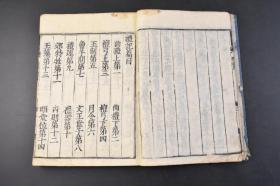 禮記篇目
曲禮上第一 曲禮下第二
檀弓上第三 檀弓下第四
王制第五 月令第六
曾子問第七 文王世子第八
禮運第九 禮器第十
郊特牲第十一 內則第十二
玉藻第十三 明堂位第十四